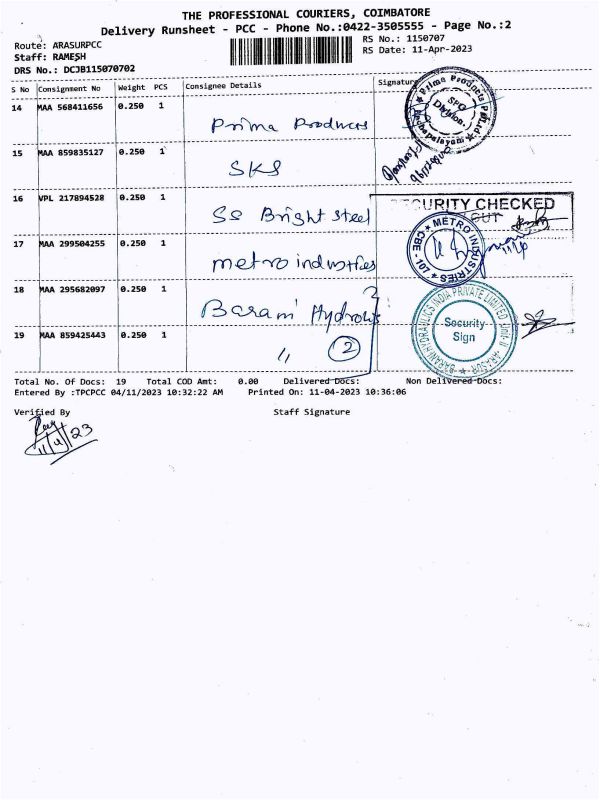 THE PROFESSIONAL COURIERS, COIMBATORE
Delivery Runsheet - PCC - Phone No.:0422-3505555 - Page No.:2
Route: ARASURPCC
RS No.: 1150707
Staff: RAMESH
RS Date: 11-Apr-2023
DRS No.: DCJB115070702
S No Consignment No Weight PCS Consignee Details Signature
14 MAA 568411656 0.250 1 Prima Products
Prima Products P Ltd
SFG Division.
15 MAA 859835127 0.250 1 SKS
16 VPL 217894528 0.250 1 SS Bright Steel
SECURITY CHECKED
OUT
17 MAA 299504255 0.250 1 metro industries
METRO INDUSTRIES
CBE - 107
18 MAA 295682097 0.250 1 Barani Hydrolis
BARANI HYDRAULICS INDIA PRIVATE LIMITED Unit-II -ARASUR
Security Sign
19 MAA 859425443 0.250 1 〃 2
Total No. Of Docs: 19 Total COD Amt: 0.00 Delivered Docs: Non Delivered Docs:
Entered By :TPCPCC 04/11/2023 10:32:22 AM Printed On: 11-04-2023 10:36:06
Verified By Staff Signature
11/4/23